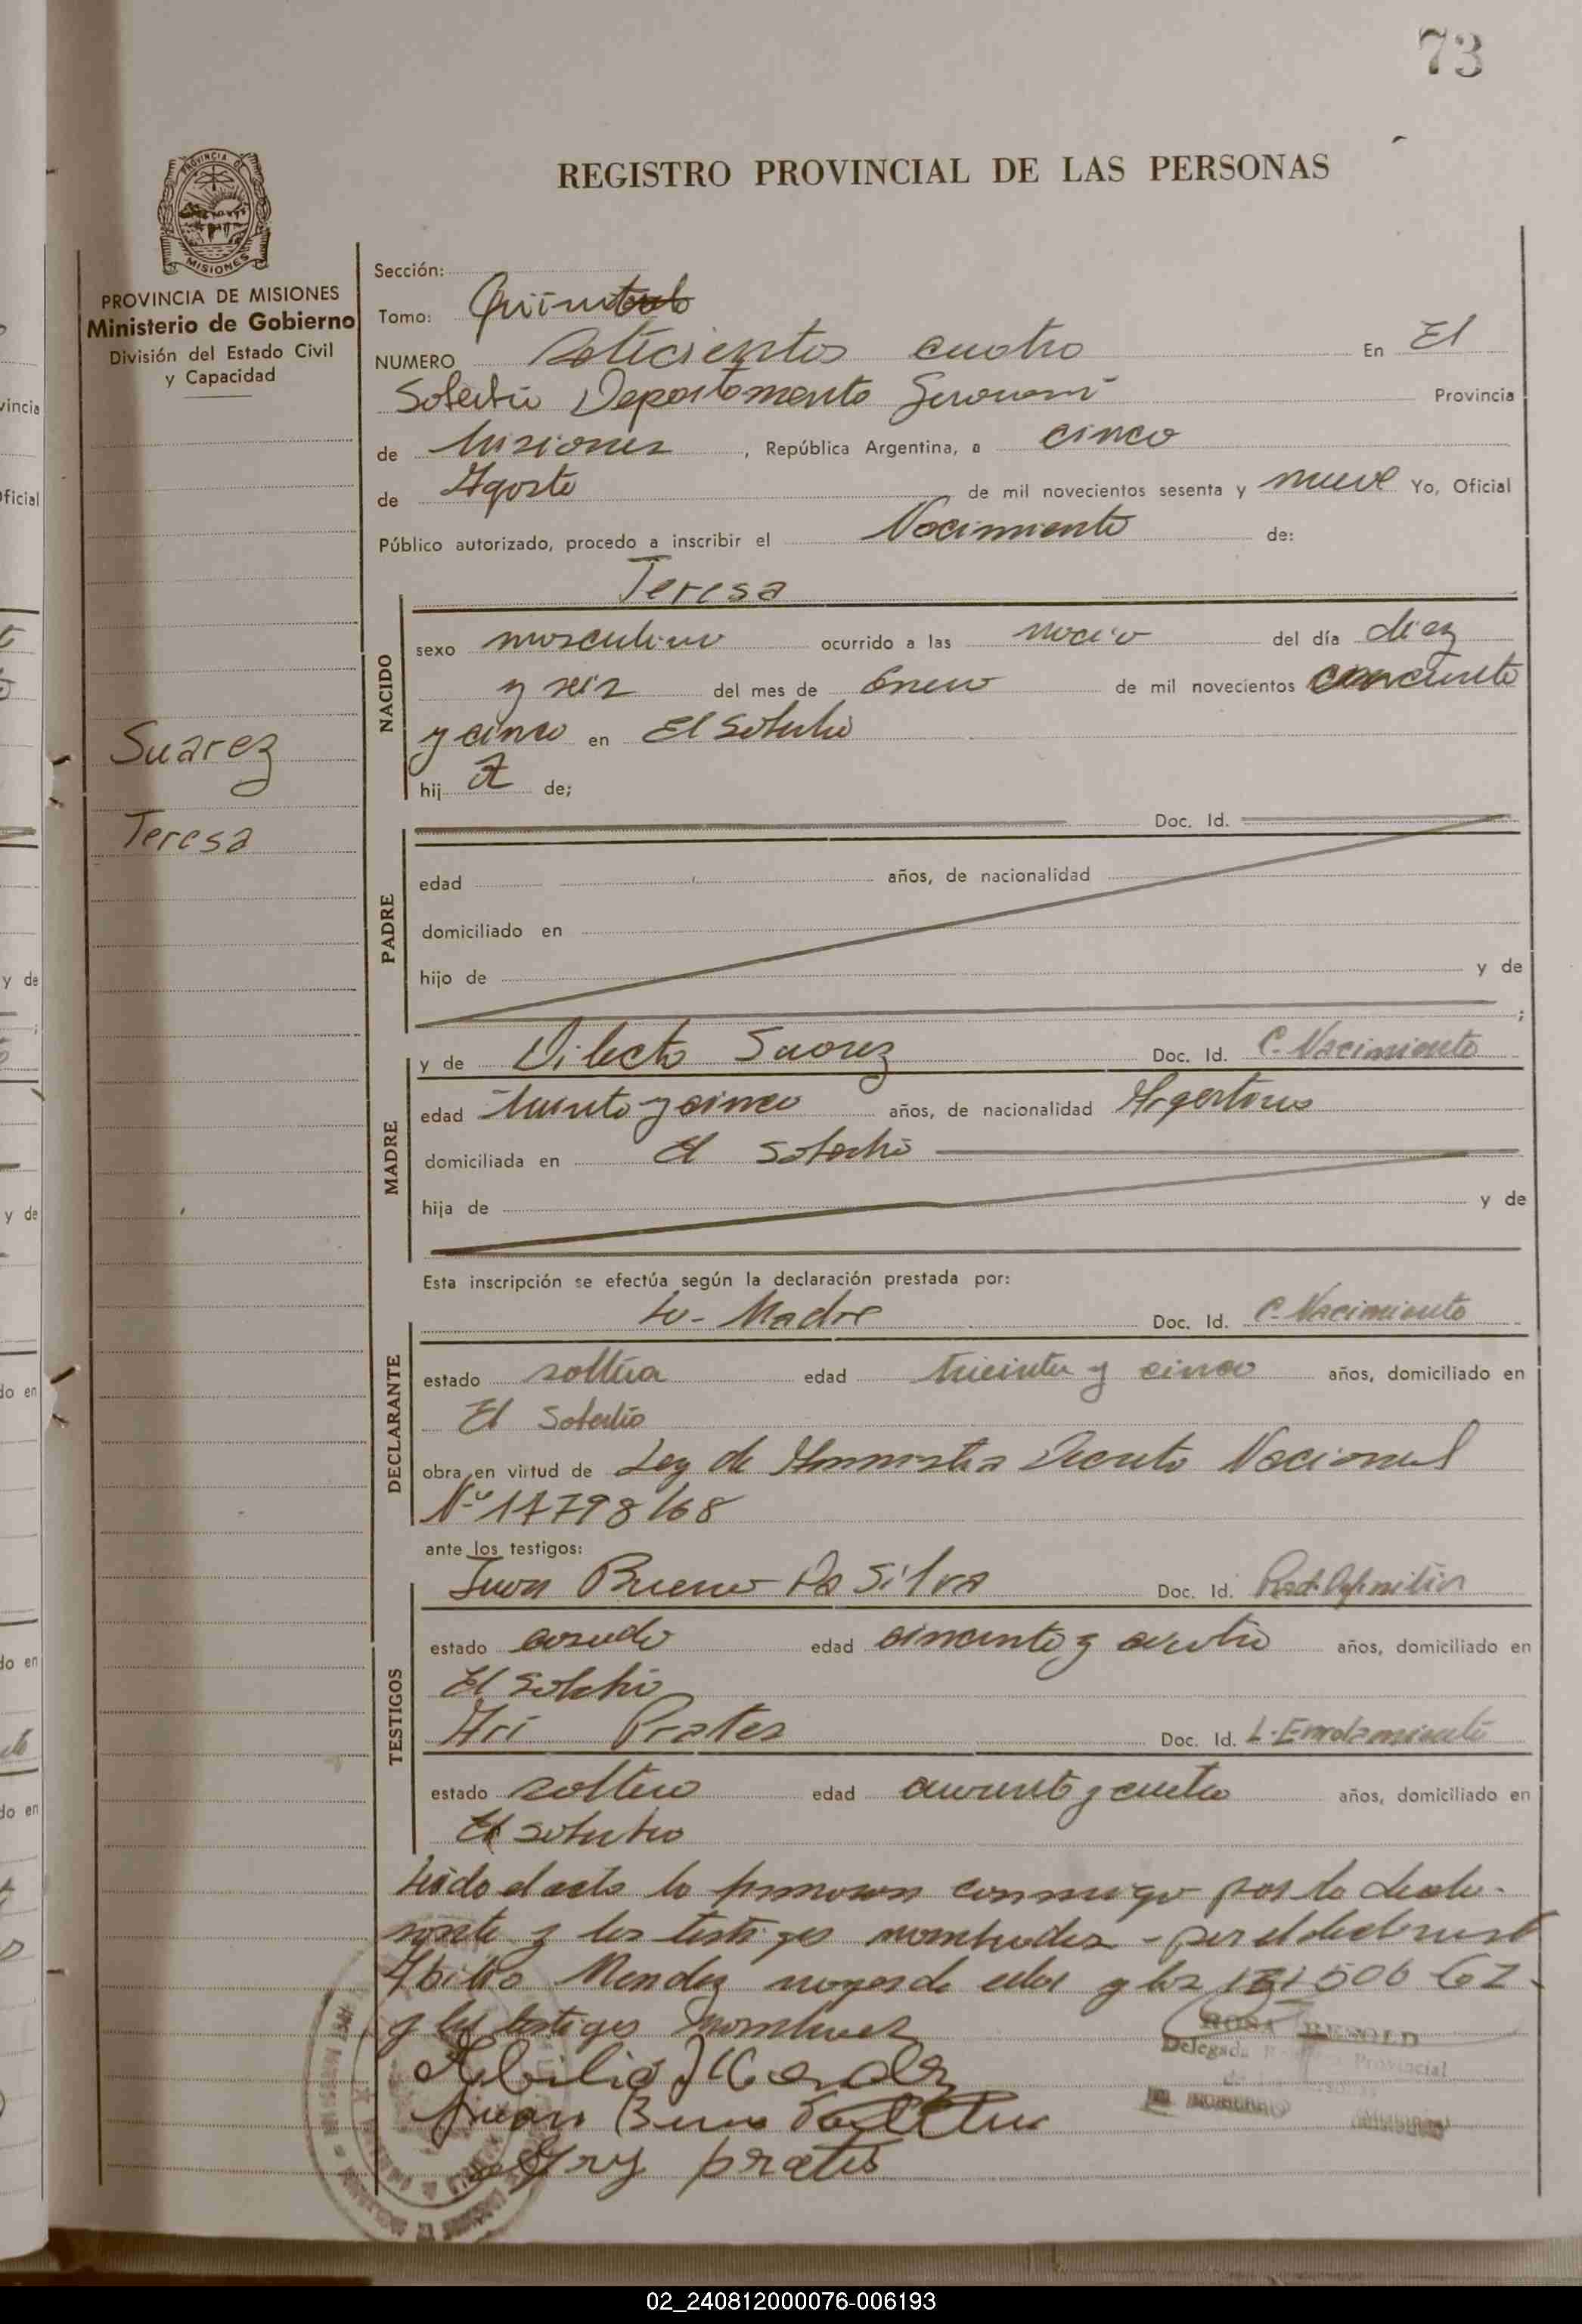 73
REGISTRO PROVINCIAL DE LAS PERSONAS
PROVINCIA DE MISIONES
PROVINCIA DE MISIONES
Ministerio de Gobierno
División del Estado Civil
y Capacidad
Suarez
Teresa
Sección:
Tomo:
NUMERO Seticientos cuatro En El
Soberbio Departamento Guarani Provincia
de Misiones , República Argentina, a cinco
de Agosto de mil novecientos sesenta y nueve Yo, Oficial
Público autorizado, procedo a inscribir el Nacimiento de:
Teresa
NACIDO
sexo masculino ocurrido a las del día diez
y seis del mes de Enero de mil novecientos cincuenta
y cinco en El Soberbio
hij a de;
PADRE
Doc. Id.
edad años, de nacionalidad
domiciliado en
hijo de y de
;
MADRE
y de Dilecta Suarez Doc. Id. C. Nacimiento
edad treinta y cinco años, de nacionalidad Argentina
domiciliada en El Soberbio
hija de y de
Esta inscripción se efectúa según la declaración prestada por:
DECLARANTE
su- Madre Doc. Id. C. Nacimiento
estado soltera edad treinta y cinco años, domiciliado en
El Soberbio
obra en virtud de Ley de Amnistia Decreto Nacional
Nº 17798/68
ante los testigos:
TESTIGOS
Juan Bueno Da Silva Doc. Id.
estado casado edad cincuenta y cuatro años, domiciliado en
El Soberbio
Ari Prates Doc. Id. L. Enrolamiento
estado soltero edad cuarenta y cuatro años, domiciliado en
El Soberbio
Leido el acta la firmaron conmigo por la decla-
rante y los testigos nombrados - por el declarante
Abilio Mendez mayor de edad
y los testigos
Abilio Mendez
Juan Bueno Da Silva
Ary prates
ROSA
Delegada Provincial
02_240812000076-006193